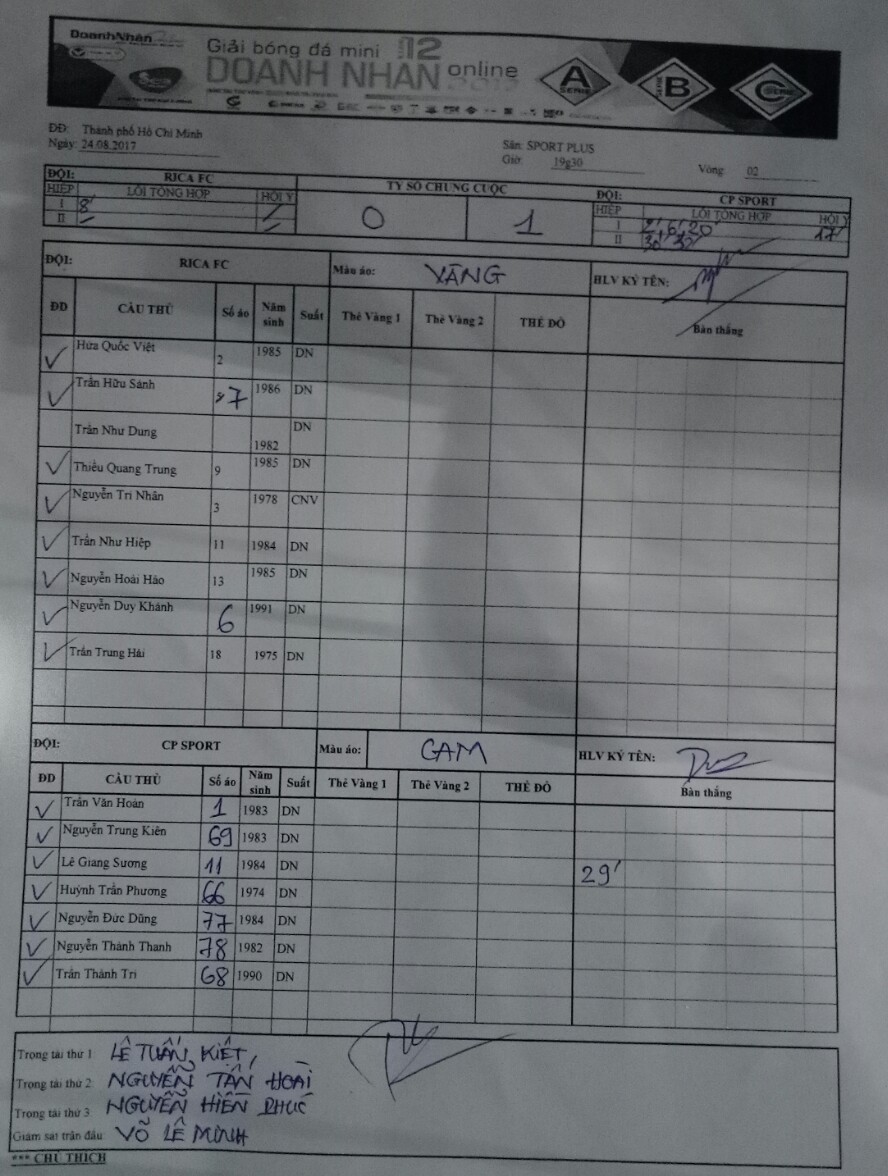 DoanhNhân
Giải bóng đá mini 12
DOANH NHÂN online
A SERIE
SERIE B
C SERIE
ĐĐ: Thành phố Hồ Chí Minh
Ngày: 24.08.2017
Sân: SPORT PLUS
Giờ: 19g30
Vòng: 02
ĐỘI: RICA FC TỶ SỐ CHUNG CUỘC ĐỘI: CP SPORT
HIỆP LỖI TỔNG HỢP HỘI Ý 0 1 HIỆP LỖI TỔNG HỢP HỘI Ý
I 8' I 2', 6', 20' 17'
II II
ĐỘI: RICA FC Màu áo: VÀNG HLV KÝ TÊN:
ĐD CẦU THỦ Số áo Năm sinh Suất Thẻ Vàng 1 Thẻ Vàng 2 THẺ ĐỎ Bàn thắng
✓ Hứa Quốc Việt 2 1985 DN
✓ Trần Hữu Sánh 7 1986 DN
Trần Như Dung 1982 DN
✓ Thiều Quang Trung 9 1985 DN
✓ Nguyễn Trí Nhân 3 1978 CNV
✓ Trần Như Hiệp 11 1984 DN
✓ Nguyễn Hoài Hảo 13 1985 DN
✓ Nguyễn Duy Khánh 6 1991 DN
✓ Trần Trung Hải 18 1975 DN
ĐỘI: CP SPORT Màu áo: CAM HLV KÝ TÊN:
ĐD CẦU THỦ Số áo Năm sinh Suất Thẻ Vàng 1 Thẻ Vàng 2 THẺ ĐỎ Bàn thắng
✓ Trần Văn Hoàn 1 1983 DN
✓ Nguyễn Trung Kiên 69 1983 DN
✓ Lê Giang Sương 11 1984 DN 29'
✓ Huỳnh Trần Phương 66 1974 DN
✓ Nguyễn Đức Dũng 77 1984 DN
✓ Nguyễn Thành Thanh 78 1982 DN
✓ Trần Thành Trí 68 1990 DN
Trọng tài thứ 1: LÊ TUẤN KIẾT,
Trọng tài thứ 2: NGUYỄN TẤN HOÀI
Trọng tài thứ 3: NGUYỄN HIỀN PHÚC
Giám sát trận đấu: VÕ LÊ MINH
*** CHÚ THÍCH